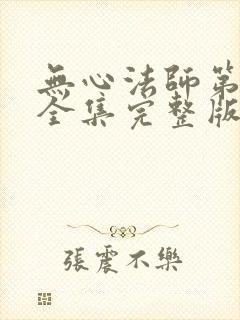 無心法師第
全集完整版
張震不樂